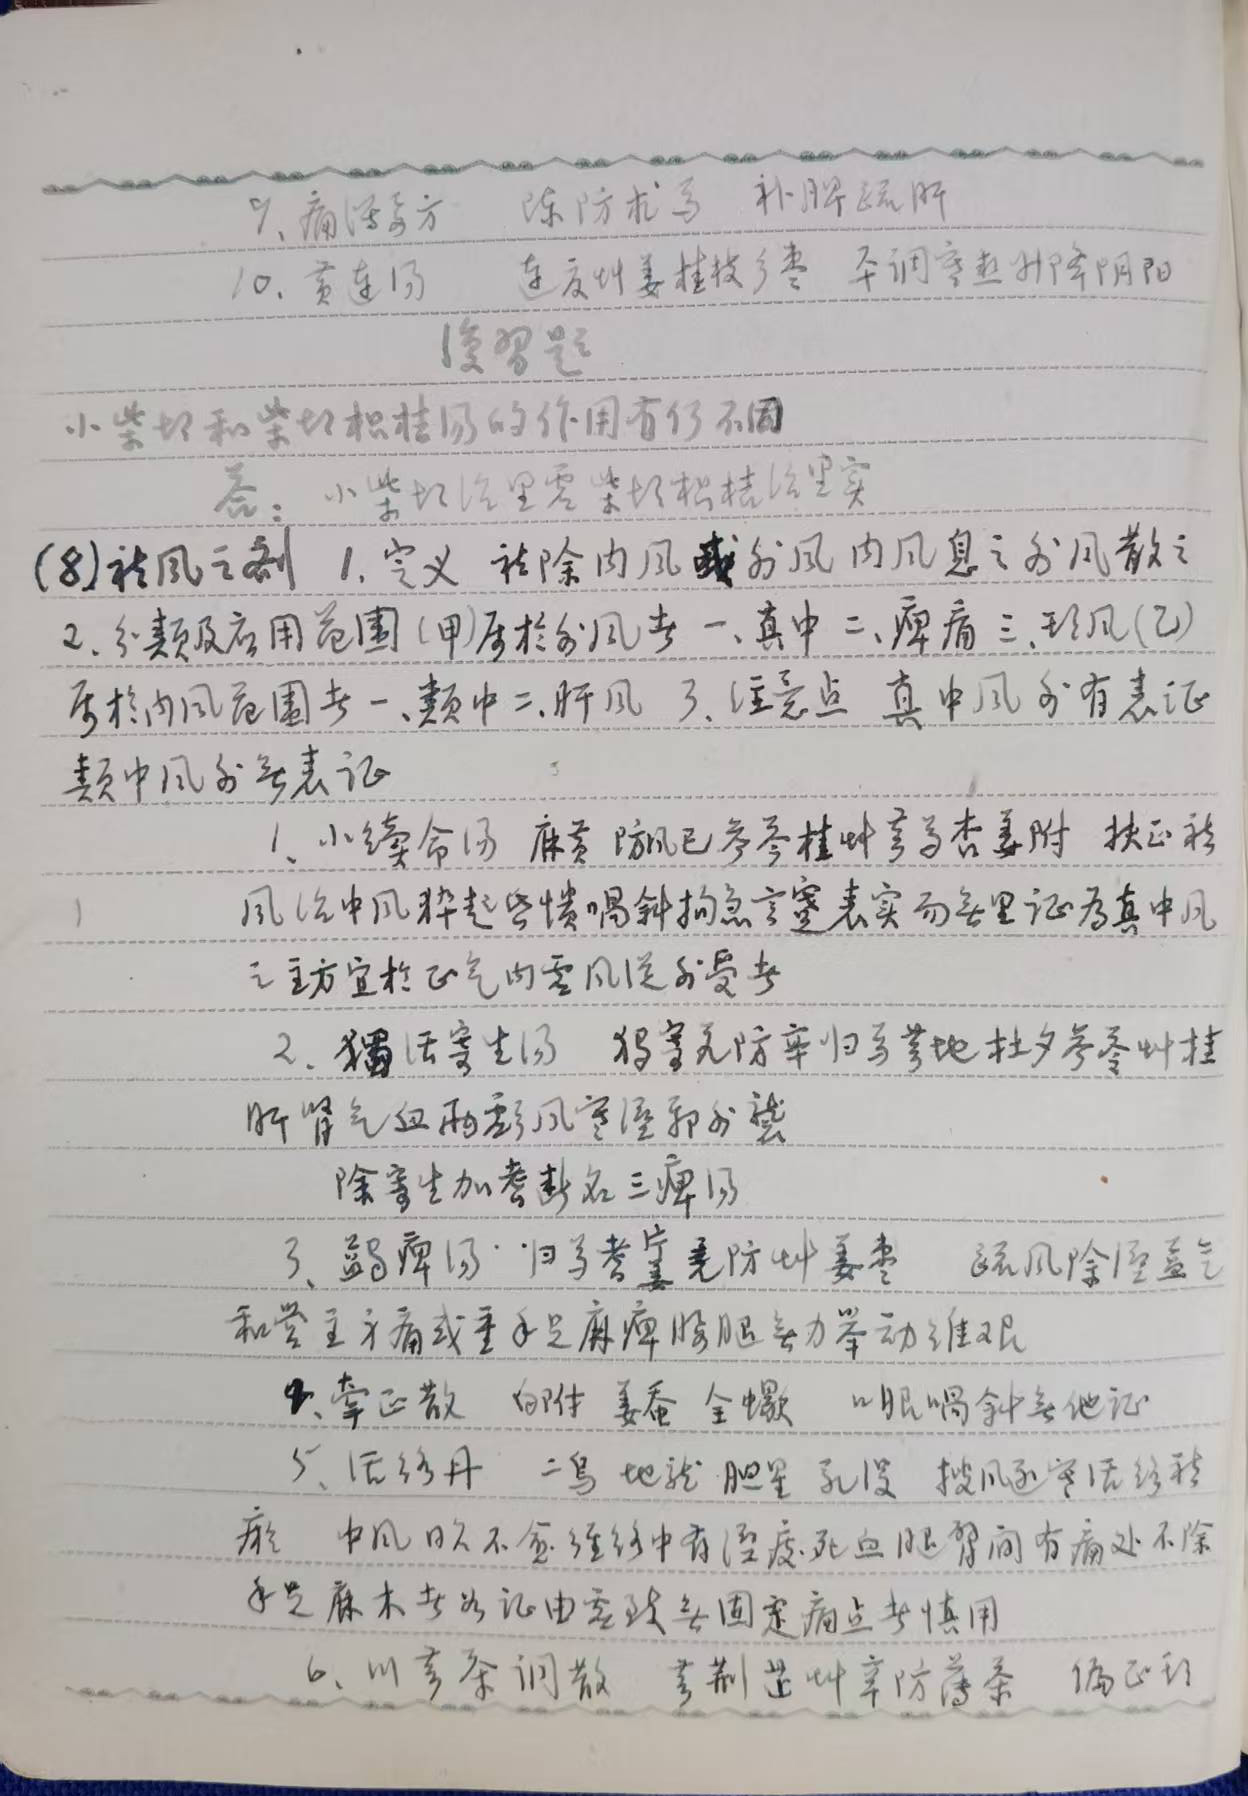 9、痛泻要方 陈防术芍 补脾疏肝
10、黄连汤 连夏艸姜桂枝参枣 平调寒热升降阴阳
復習题
小柴胡和柴胡枳桔汤的作用有何不同
答：小柴胡治里虚柴胡枳桔治里实
(8)祛风之剂 1.定义 祛除内风或外风内风息之外风散之
2、分類及应用范围(甲)属於外风者一、真中二、痺痛三、头风(乙)
属於内风范围者一、類中二、肝风 3、注意点 真中风外有表证
類中风外無表证
1、小续命汤 麻黄 防风己参芩桂艸芎芍杏姜附 扶正祛
风治中风猝起昏愦喎斜拘急言蹇表实而無里证为真中风
之主方宜於正气内虚风従外受者
2、獨活寄生汤 独寄艽防辛归芍芎地杜夕参苓艸桂
肝腎气血两虧风寒湿邪外襲
除寄生加耆断名三痺汤
3、蠲痺汤 归芍耆片姜羌防艸姜枣 疏风除湿益气
和营主身痛或重手足麻痺腰腿無力举动维艰
4、牵正散 白附 姜蚕 全蠍 口眼喎斜無他证
5、活络丹 二乌 地龙 胆星 乳没 搜风逐寒活络祛
瘀 中风日久不愈经络中有湿痰死血腿臂间有痛处不除
手足麻木者 证由虚致無固定痛点者慎用
6、川芎茶调散 芎荆芷艸辛防薄茶 偏正头